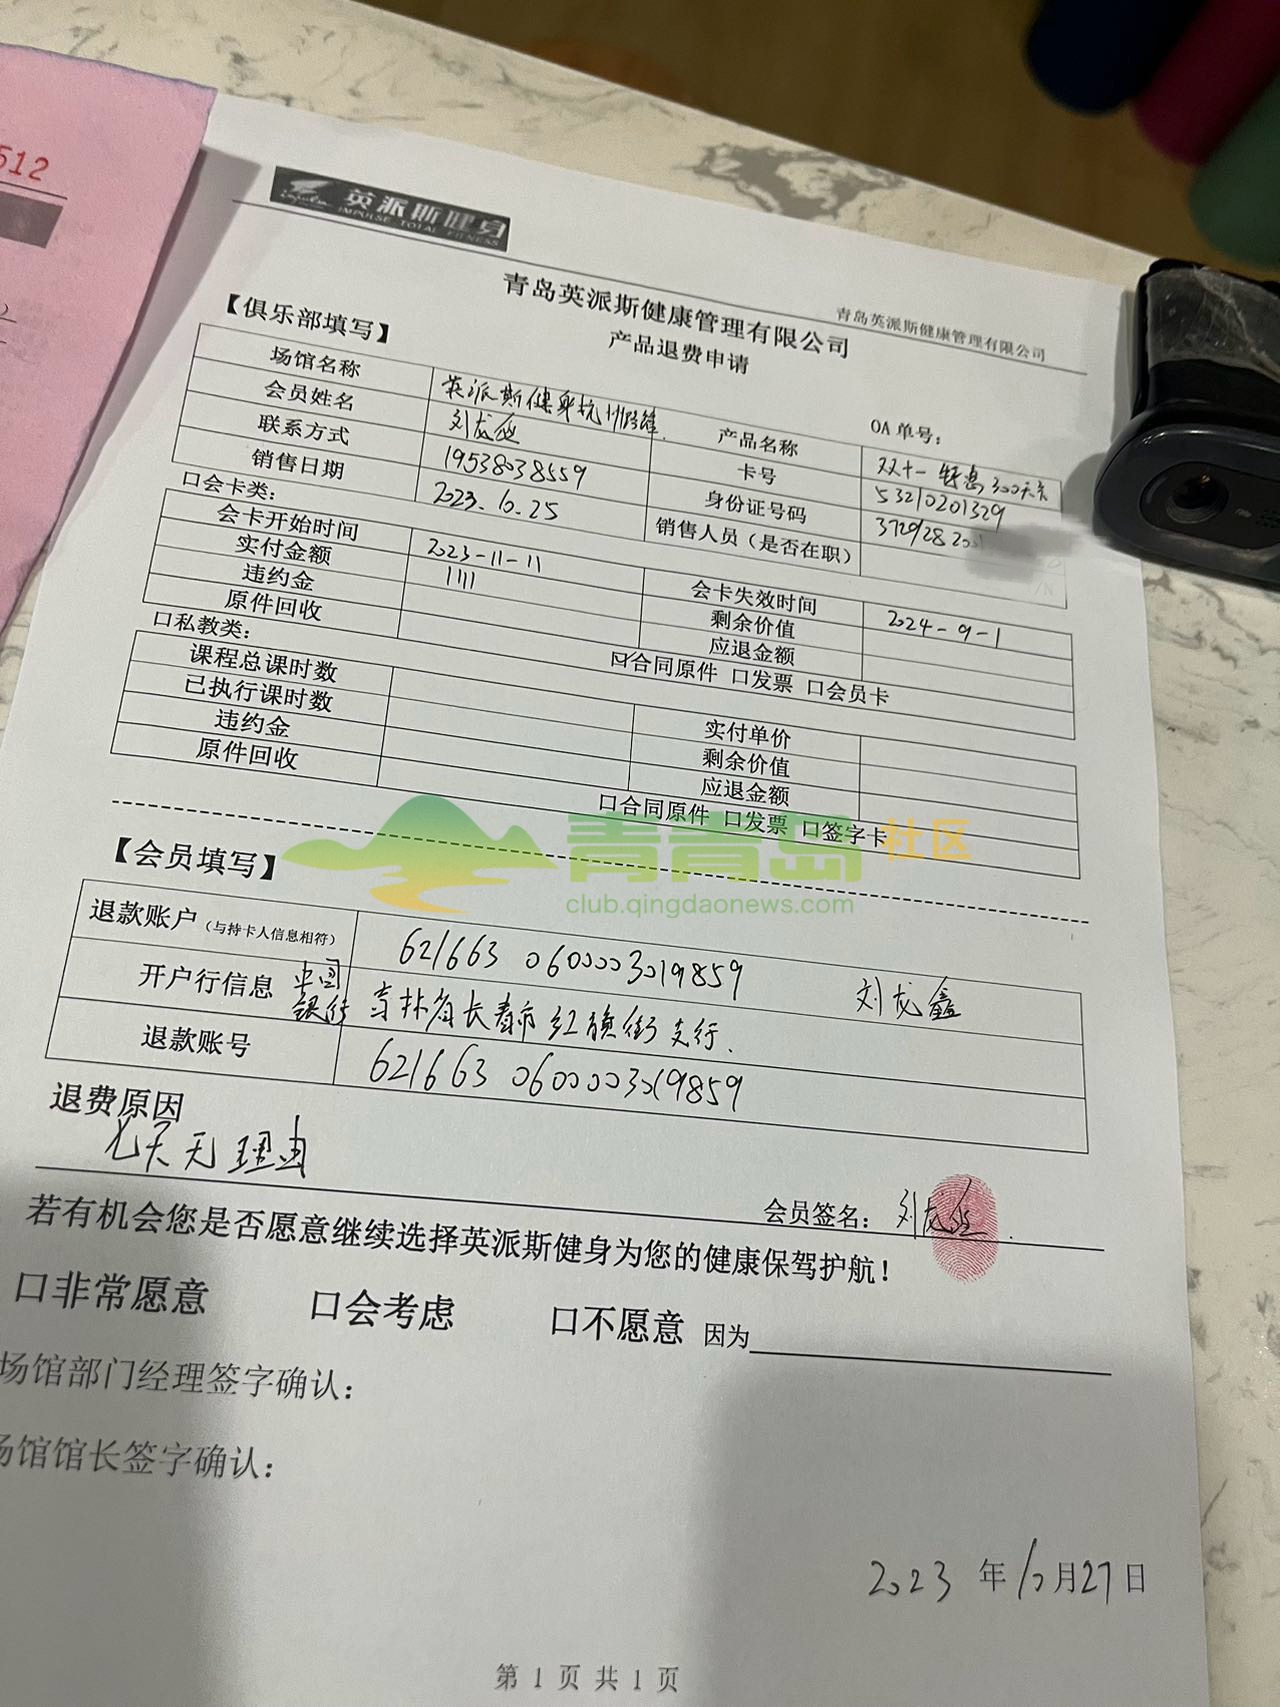 512
impulse 英派斯健身
IMPULSE TOTAL FITNESS
青岛英派斯健康管理有限公司
青岛英派斯健康管理有限公司
产品退费申请
【俱乐部填写】
OA单号：
场馆名称 英派斯健身杭州路 产品名称 双十一特惠300天卡
会员姓名 刘龙鑫 卡号 53210201329
联系方式 19538038559 身份证号码 372928 200
销售日期 2023.10.25 销售人员（是否在职）
/N
口会卡类：
会卡开始时间 2023-11-11 会卡失效时间 2024-9-1
实付金额 1111 剩余价值
违约金 应退金额
原件回收 口合同原件 口发票 口会员卡
口私教类：
课程总课时数 实付单价
已执行课时数 剩余价值
违约金 应退金额
原件回收 口合同原件 口发票 口签字卡
青青岛社区
club.qingdaonews.com
【会员填写】
退款账户（与持卡人信息相符） 621663 0600003019859 刘龙鑫
开户行信息 中国银行 吉林省长春市红旗街支行.
退款账号 621663 0600003019859
退费原因
七天无理由
会员签名：刘龙鑫.
若有机会您是否愿意继续选择英派斯健身为您的健康保驾护航！
口非常愿意 口会考虑 口不愿意 因为
场馆部门经理签字确认：
场馆馆长签字确认：
2023 年10月27日
第 1 页 共 1 页